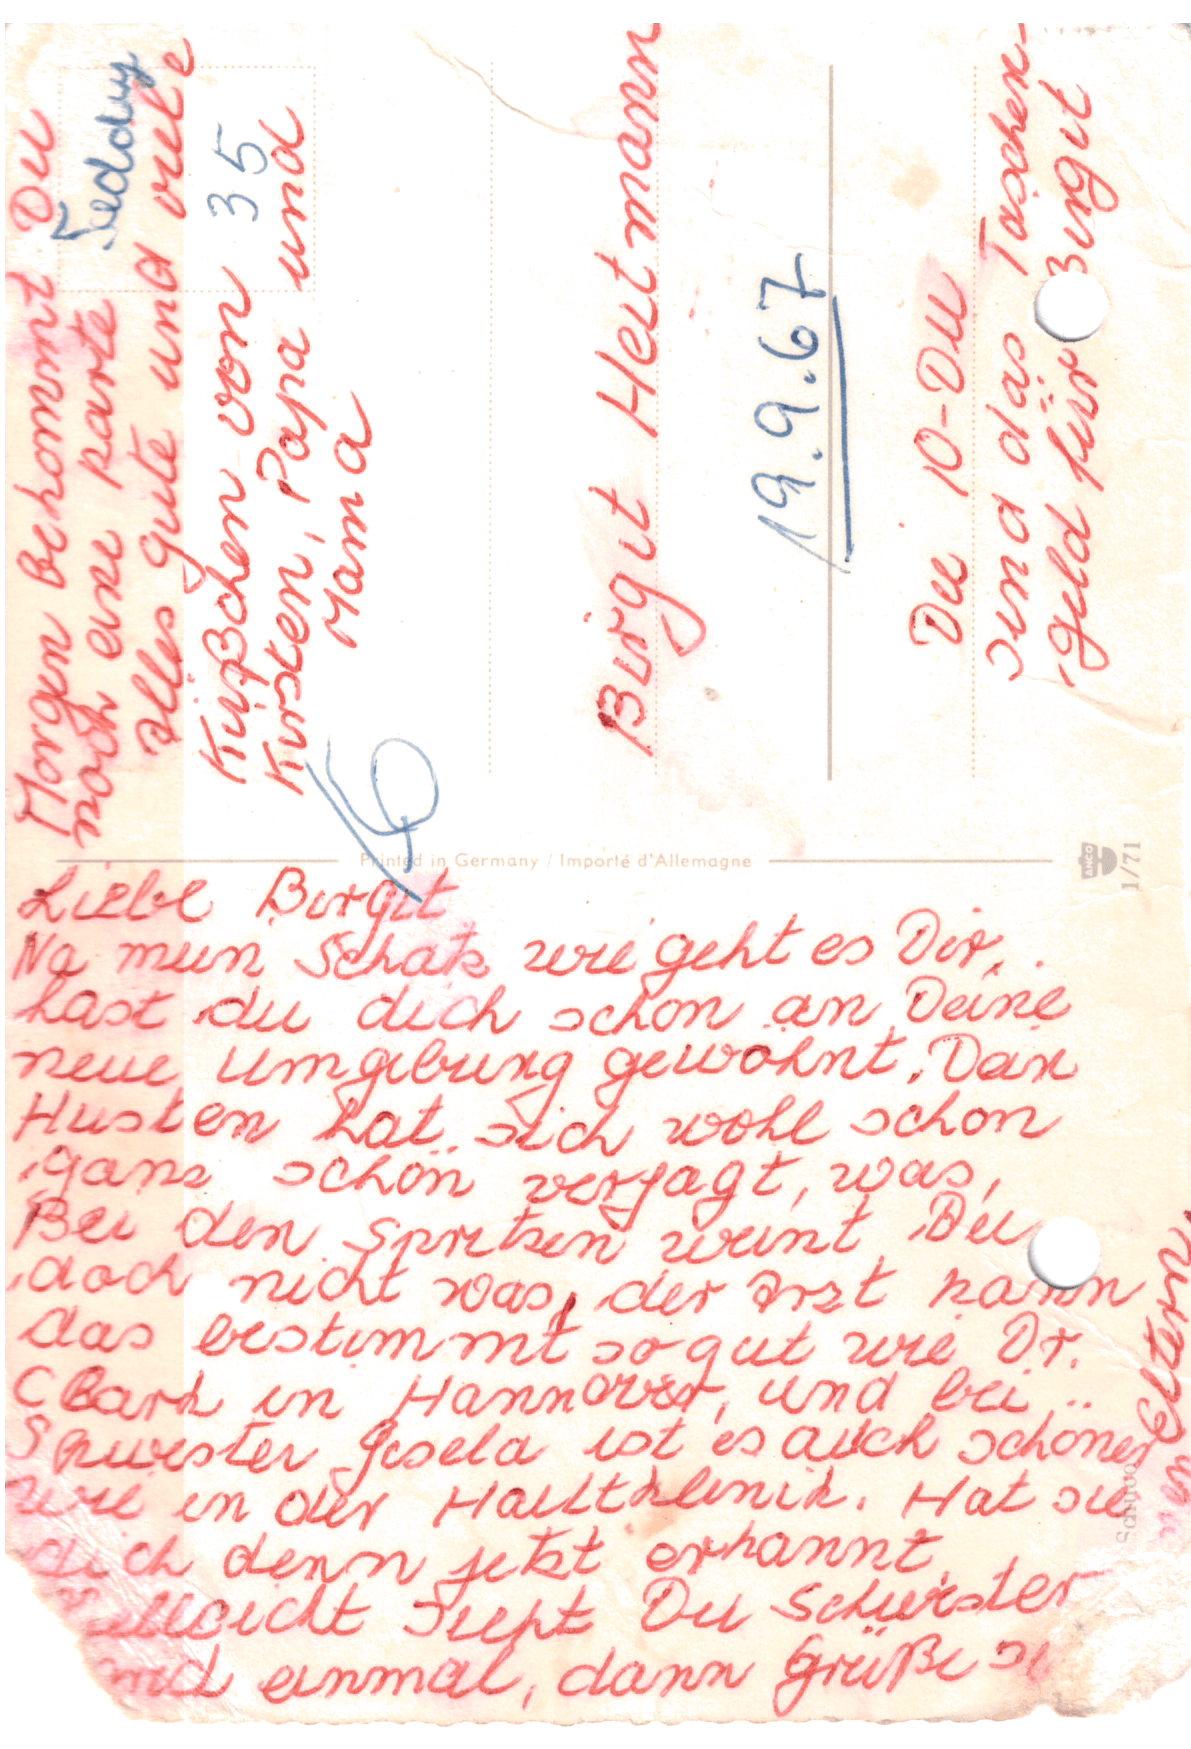 Liebe Birgit
Na mein Schatz wie geht es Dir,
hast du dich schon an Deine
neue Umgebung gewöhnt, Dein
Husten hat sich wohl schon
ganz schön verjagt, was,
Bei den Spritzen weint Du
doch nicht was, der Arzt kann
das bestimmt so gut wie Dr.
in Hannover, und bei
Schwester Gisela ist es auch schöner
wie in der Hautklinik. Hat sie
dich denn jetzt erkannt,
Vielleicht siehst Du Schwester
einmal, dann Grüße
Eltern,
Morgen bekommt Du
noch eine karte
alles gute und viele
Küßchen von
Kirsten, Papa und
Mama
Teddy
35
Birgit Heitmann
19.9.67
Die 10-DM
sind das Taschen-
geld für Birgit
Printed in Germany / Importé d'Allemagne
ANCO
1/71